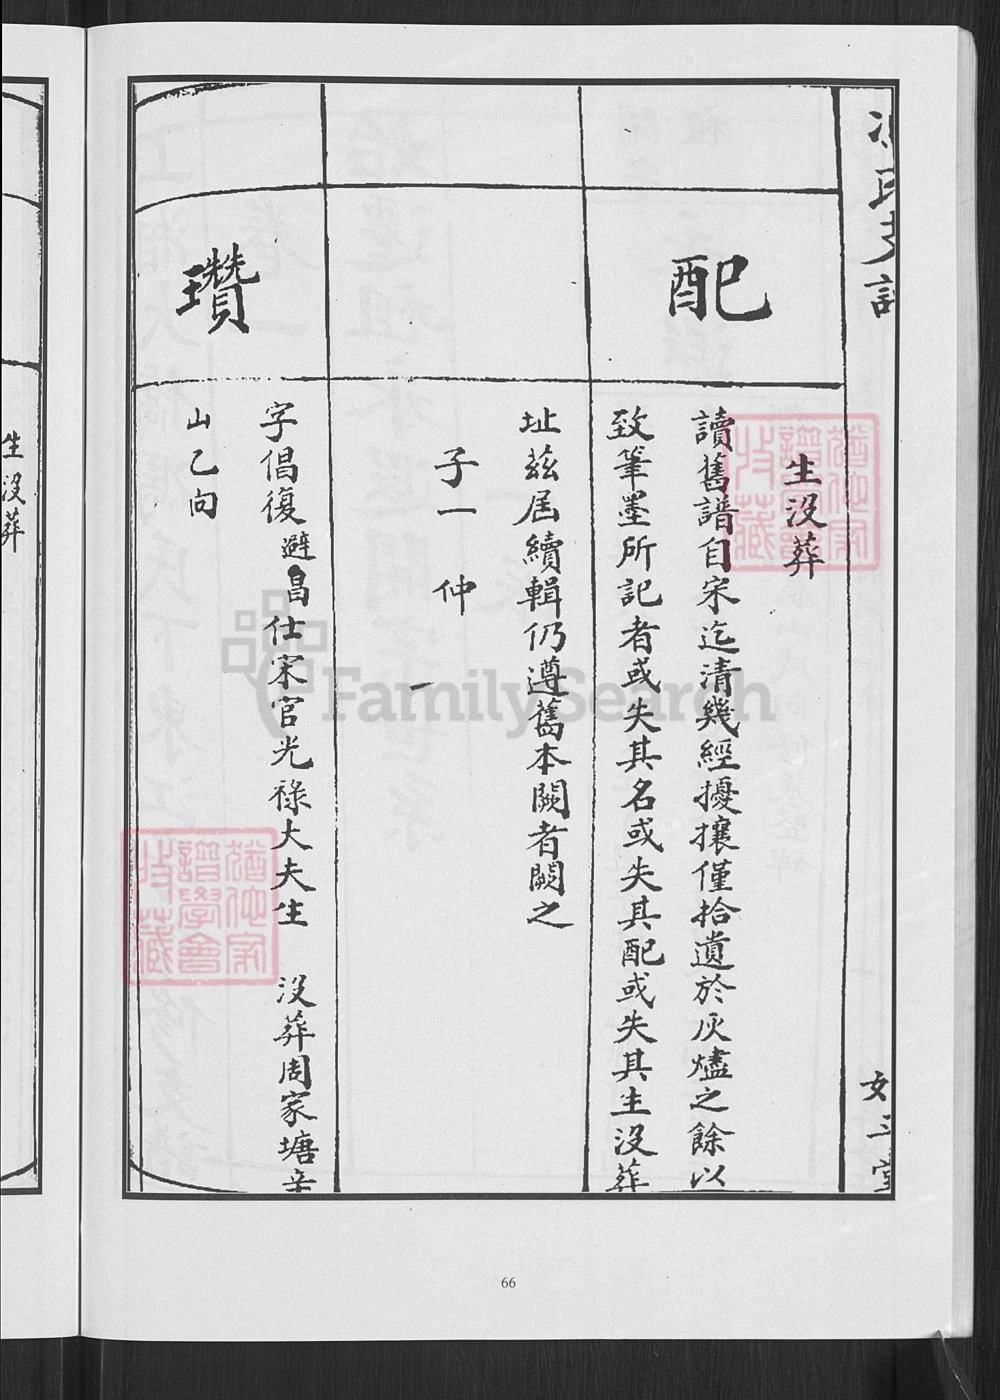 氏支譜
配
生沒葬
讀舊譜自宋迄清幾經擾攘僅拾遺於灰燼之餘以
致筆墨所記者或失其名或失其配或失其生沒葬
址茲屆續輯仍遵舊本闕者闕之
子一 仲一
瓚
字倡復避昌仕宋官光祿大夫生 沒葬周家塘辛
山乙向
生沒葬
三堂
譜學會
收藏
譜學會
收藏
FamilySearch
66